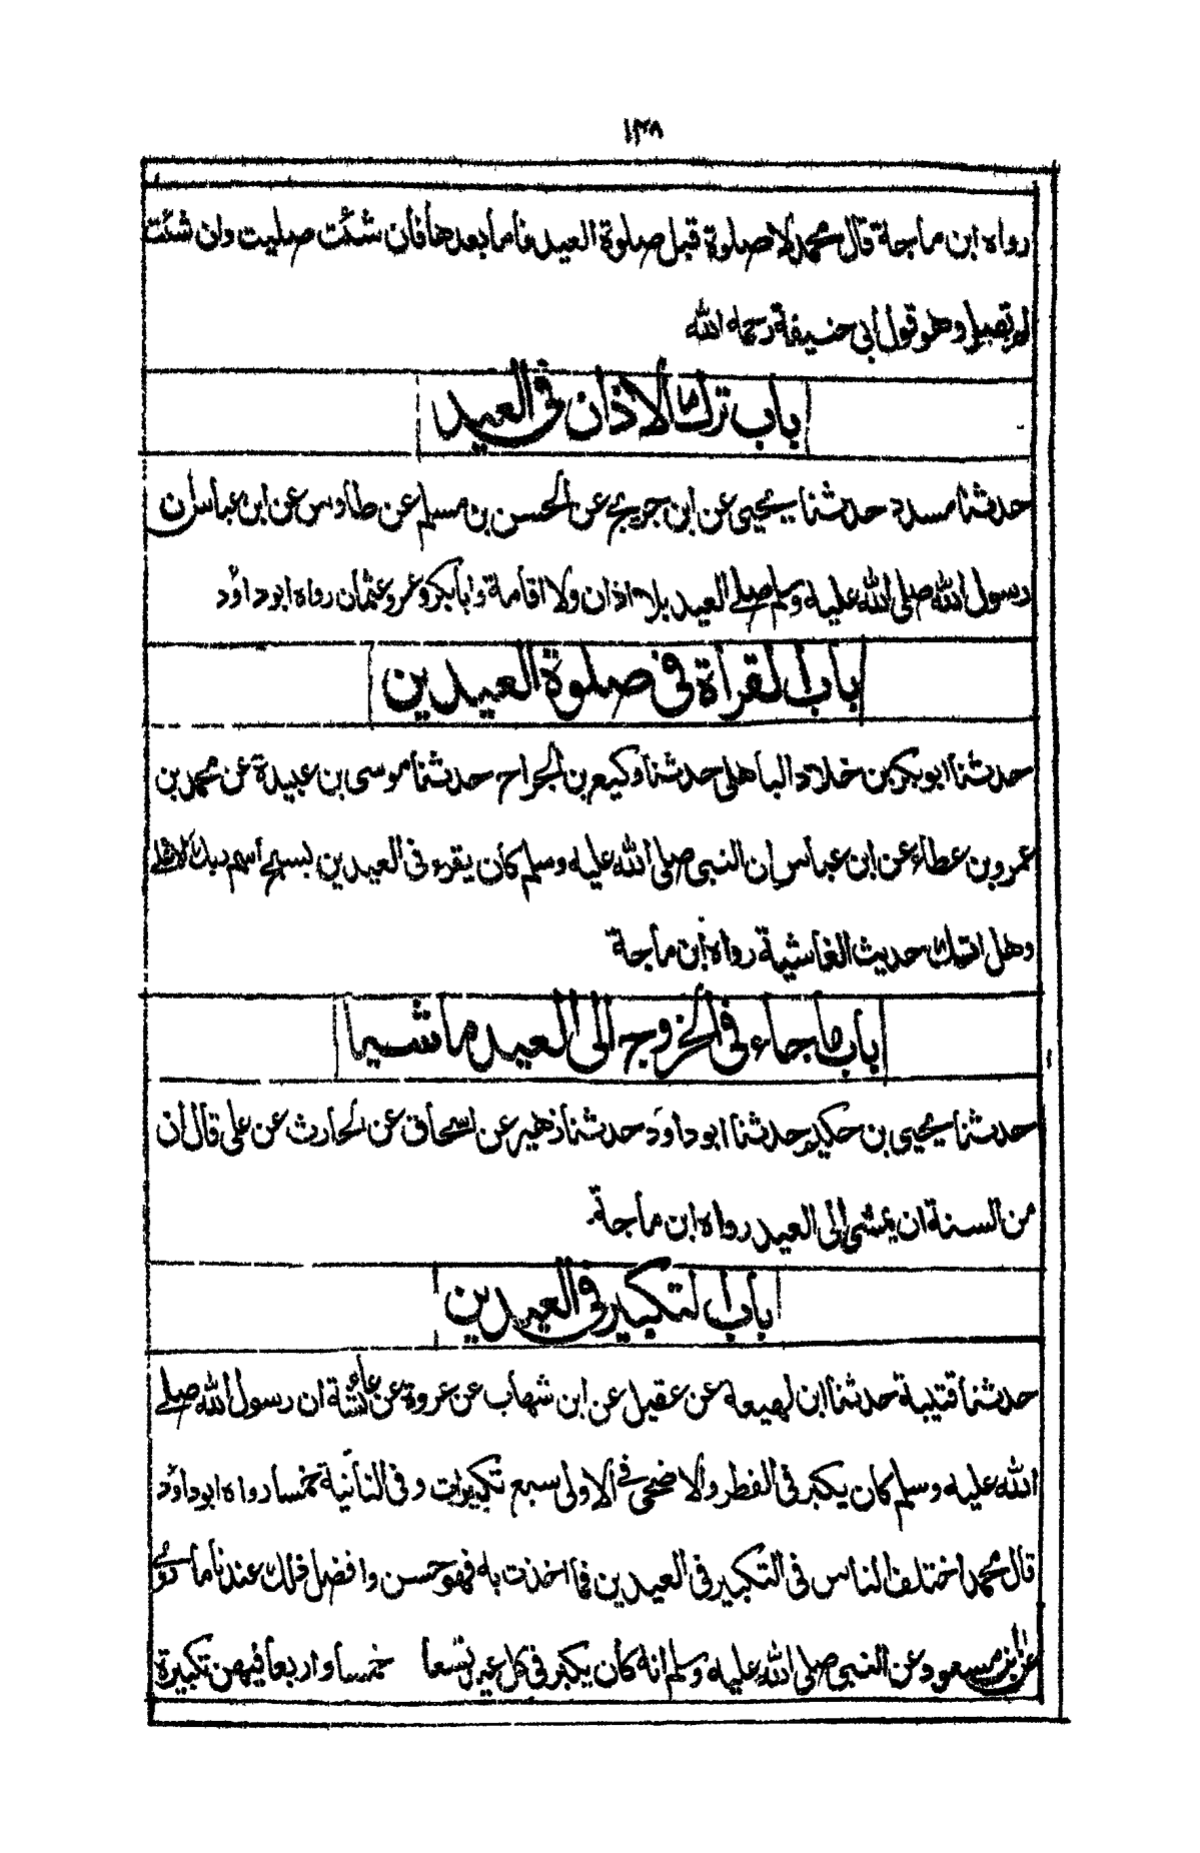 ١٣٨
رواه ابن ماجة قال محمد لا صلوة قبل صلوة العيد فاما بعدها فان شئت صليت وان شئت
لم تصل وهو قول ابي حنيفة رحمه الله
باب ترك الاذان في العيد
حدثنا مسدد حدثنا يحيى عن ابن جريج عن الحسن بن مسلم عن طاوس عن ابن عباس ان
رسول الله صلى الله عليه وسلم صلے العيد بلا اذان ولا اقامة وابا بكر وعمر وعثمان رواه ابو داؤد
باب القراة في صلوة العيدين
حدثنا ابو بكر بن خلاد الباهلي حدثنا وكيع بن الجراح حدثنا موسى بن عبيدة عن محمد بن
عمرو بن عطاء عن ابن عباس ان النبي صلى الله عليه وسلم كان يقرء في العيدين بسبح اسم ربك الاعلے
وهل اتىك حديث الغاشية رواه ابن ماجة
باب ما جاء في الخروج الى العيد ماشيا
حدثنا يحيى بن حكيم حدثنا ابو داود حدثنا زهير عن اسحاق عن الحارث عن علي قال ان
من السنة ان يمشى الى العيد رواه ابن ماجة
باب التكبير في العيدين
حدثنا قتيبة حدثنا ابن لهيعه عن عقيل عن ابن شهاب عن عروة عن عائشة ان رسول الله صلے
الله عليه وسلم كان يكبر في الفطر والاضحى في الاولى سبع تكبيرات وفي الثانية خمسا رواه ابو داؤد
قال محمد اختلف الناس في التكبير في العيدين فما اخذت به فهو حسن وافضل ذلك عندنا ما روى
عن ابن مسعود عن النبي صلى الله عليه وسلم انه كان يكبر في كل عيد تسعا خمسا واربعا فيهن تكبيرة